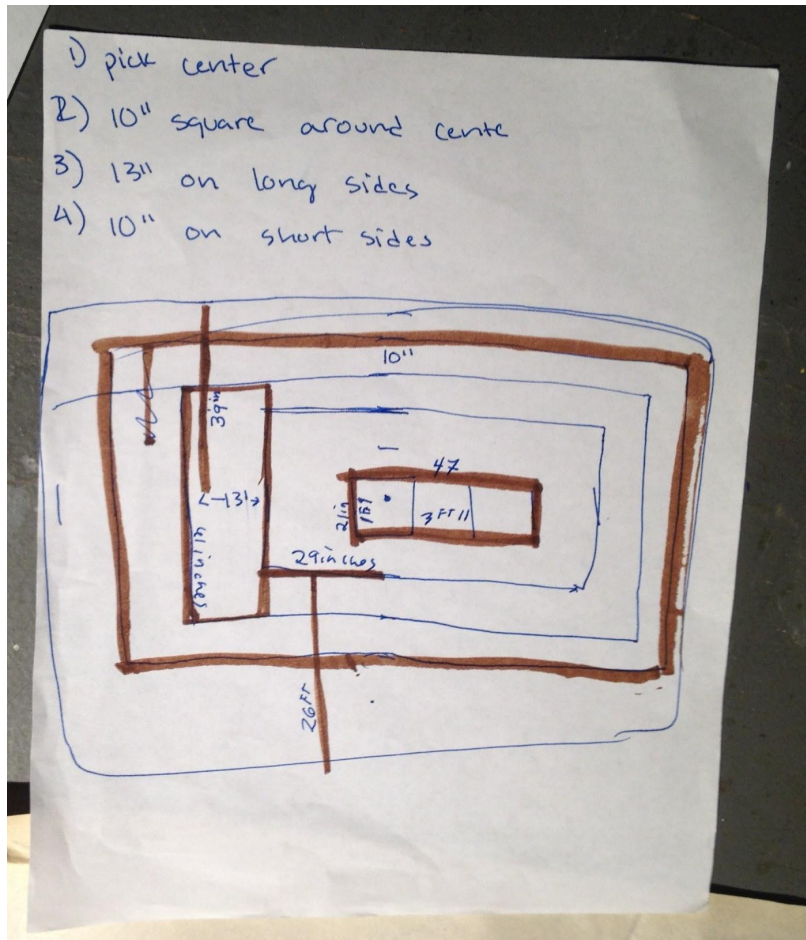 1) pick center
2) 10" square around cente
3) 13" on long sides
4) 10" on short sides
10"
39in
47
13'
21in
3FT11
41inches
29inches
26FT